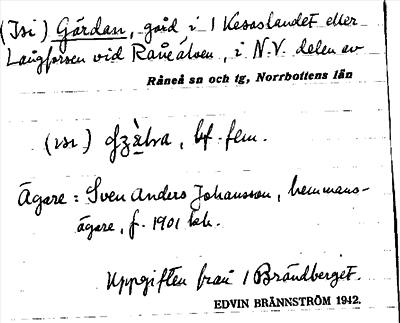 (Isi) Gärdan, gård i 1 Kesaslandet eller
Långforsen vid Råneälven, i N.V. delen av
Råneå sn och tg, Norrbottens län
bf. fem.
Ägare: Sven Anders Johansson, hemmans-
ägare, f. 1901
Uppgiften från 1 Brändberget.
EDVIN BRÄNNSTRÖM 1942.